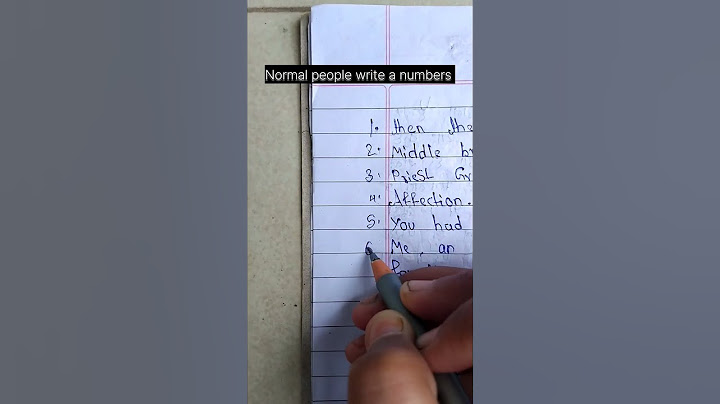 Normal people write a numbers
1. then the
2. Middle br
3. Priest Gr
4. Affection.
5. You had
6 Me, an